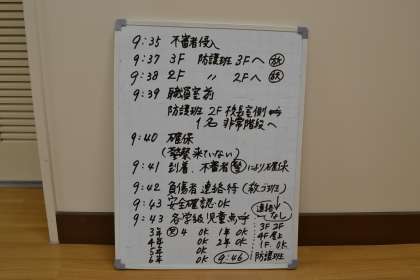 9:35 不審者侵入
9:37 3F 防護班 3Fへ 放
9:38 2F 〃 2Fへ 放
9:39 職員室前
防護班 2F 校長室側
1名 非常階段へ
9:40 確保
(警察 来ていない)
9:41 到着、不審者 警 により確保
9:42 負傷者 連絡待 (救ゴ班)
9:43 安全確認 OK
連絡なし
9:43 各学級 児童点呼
3年 4 OK 1年 OK 3F 2F
4年 OK 2年 OK 4F 屋上
5年 OK 1F OK
6年 OK 9:46 防護班